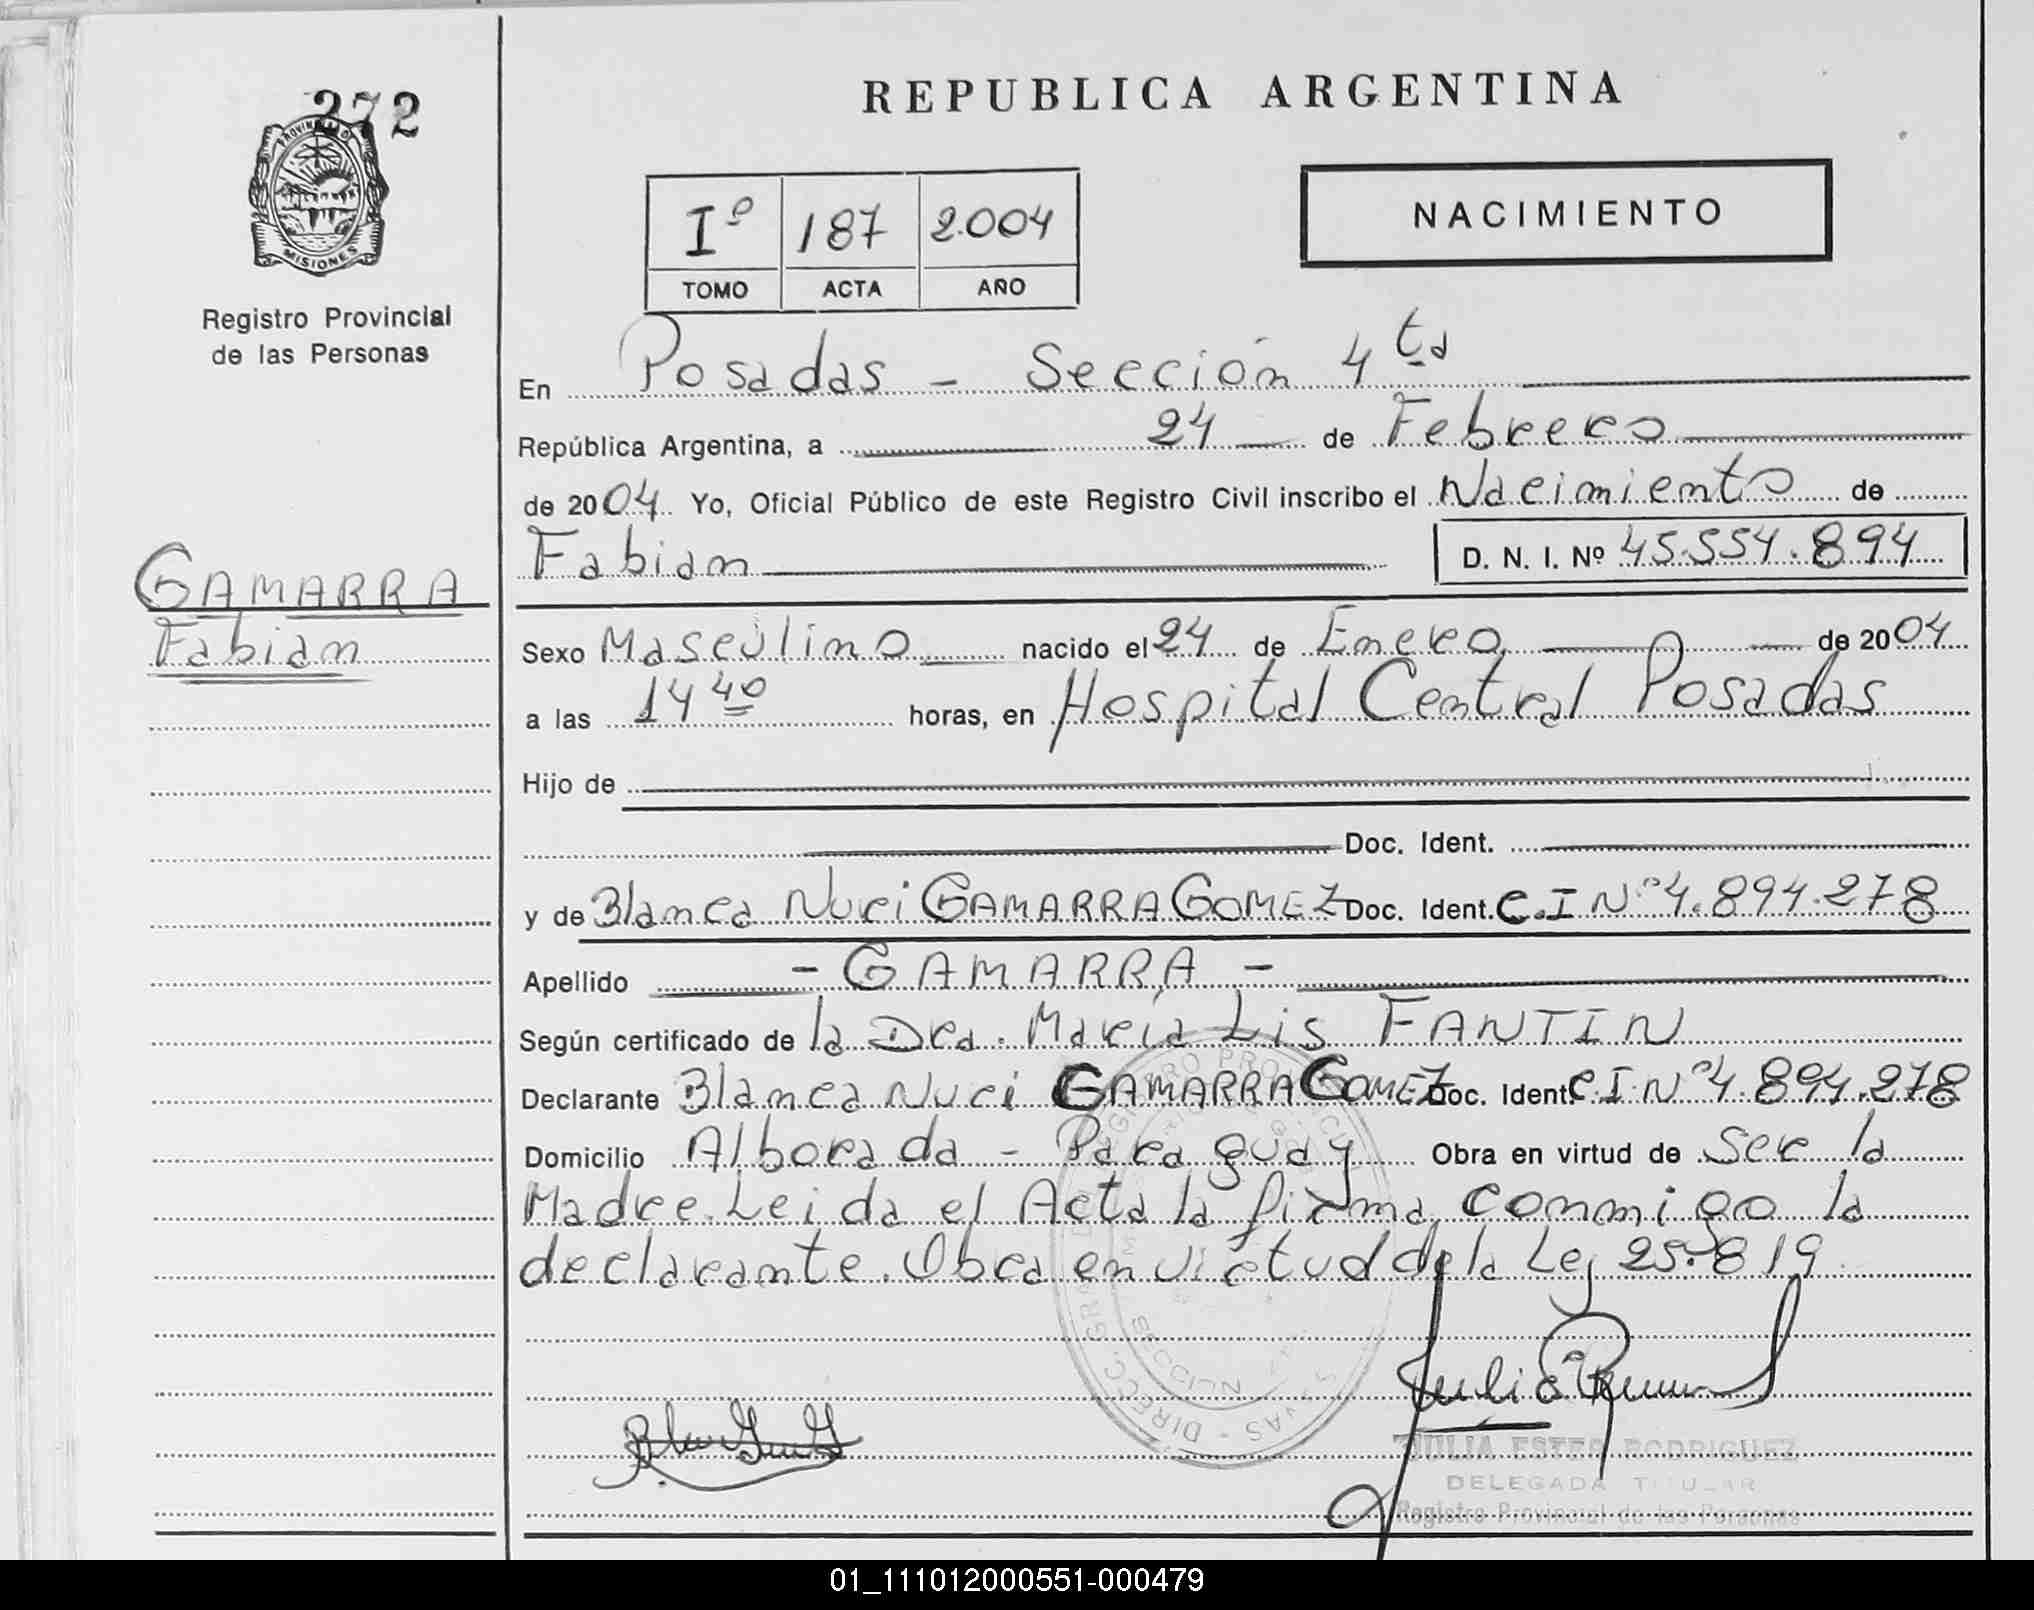 272
PROVINCIA DE
MISIONES
Registro Provincial
de las Personas
GAMARRA
Fabian
REPUBLICA ARGENTINA
Iº 187 2.004
TOMO ACTA AÑO
NACIMIENTO
En Posadas - Sección 4ta
República Argentina, a 24 de Febrero
de 2004 Yo, Oficial Público de este Registro Civil inscribo el Nacimiento de
Fabian D. N. I. Nº 45.554.894
Sexo Masculino nacido el 24 de Enero de 2004
a las 14 40 horas, en Hospital Central Posadas
Hijo de
Doc. Ident.
y de Blanca Nuri GAMARRA GOMEZ Doc. Ident. C.I Nº 4.894.278
Apellido - GAMARRA -
Según certificado de la Dra. María Lis FANTIN
Declarante Blanca Nuri GAMARRA GOMEZ Doc. Ident. C.I. Nº 4.894.278
Domicilio Alborada - Paraguay Obra en virtud de Ser la
Madre. Leida el Acta la firma conmigo la
declarante. Obra en virtud de la Ley 25.819
JULIA ESTER RODRIGUEZ
DELEGADA TITULAR
Registro Provincial de las Personas
01_111012000551-000479